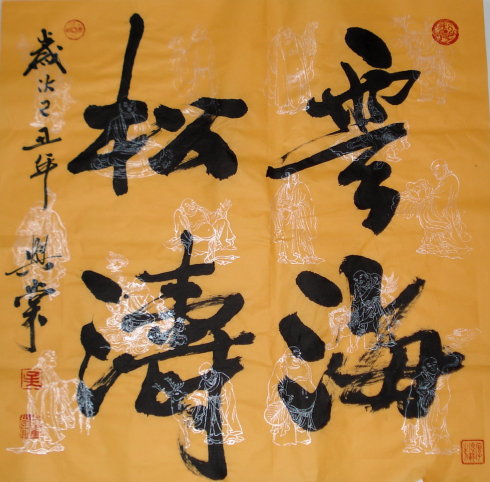 雲海
松濤
歲次己丑年